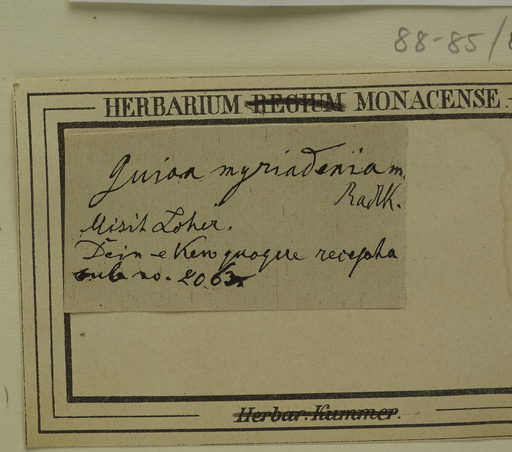 88-85/8
HERBARIUM REGIUM MONACENSE.
Guioa myriadenia m.
Radlk.
Misit Loher.
Dein e Kew quoque recepta
sub no. 2063.
Herbar. Kummer.